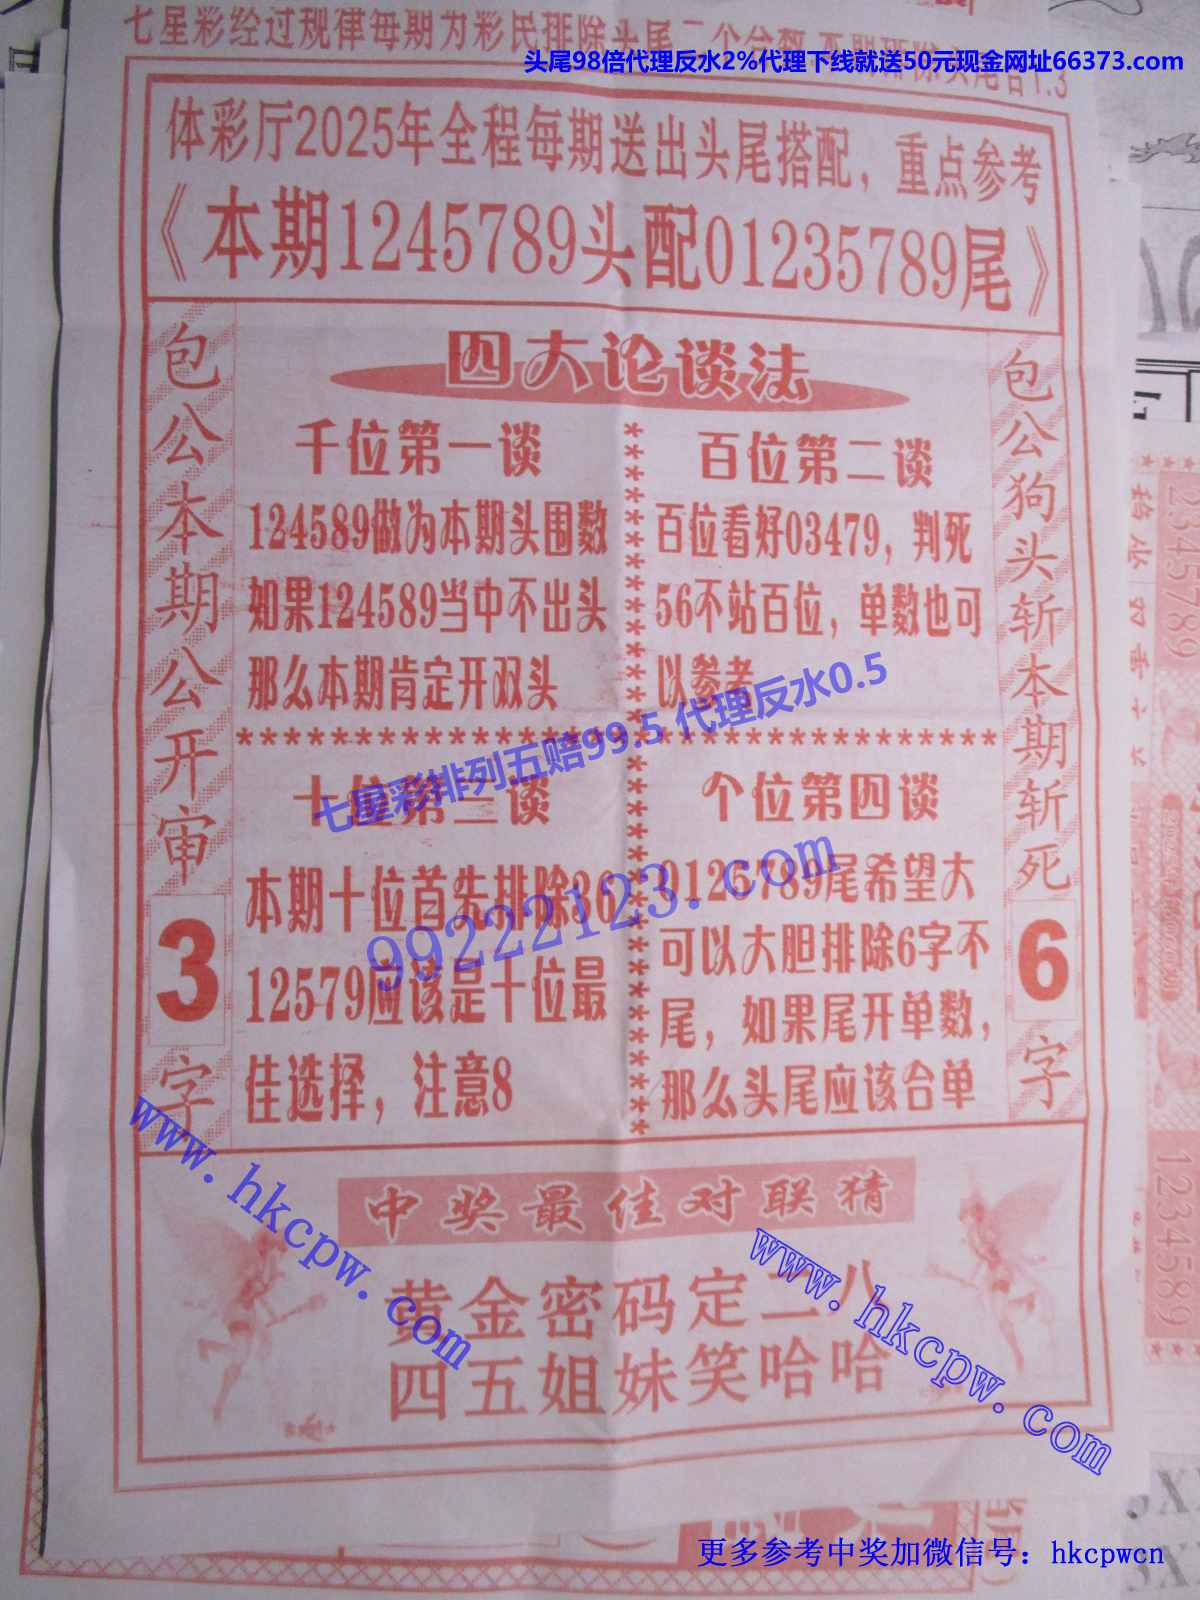 七星彩经过规律每期为彩民排除头尾二个合数
头尾98倍代理反水2%代理下线就送50元现金网址66373.com
体彩厅2025年全程每期送出头尾搭配，重点参考
《本期1245789头配01235789尾》
包公本期公开审3字
四大论谈法
千位第一谈
124589做为本期头围数
如果124589当中不出头
那么本期肯定开双头
百位第二谈
百位看好03479，判死
56不站百位，单数也可
以参考
七星彩排列五赔99.5 代理反水0.5
十位第三谈
本期十位首先排除36
12579应该是十位最
佳选择，注意8
99222123.com
个位第四谈
0125789尾希望大
可以大胆排除6字不
尾，如果尾开单数，
那么头尾应该合单
包公狗头斩本期斩死6字
中奖最佳对联猜
黄金密码定二八
四五姐妹笑哈哈
www.hkcpw.com
www.hkcpw.com
2345789
1234589
更多参考中奖加微信号：hkcpwcn